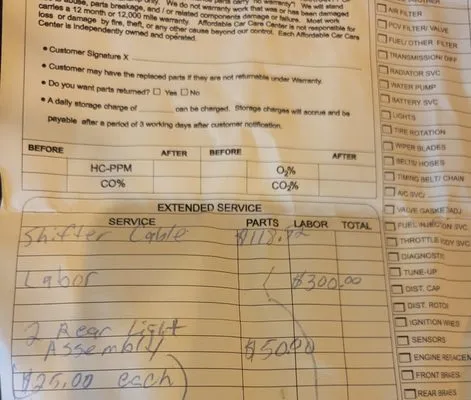 abuse, parts breakage, and / or related components damage or failure. Most work
carries a 12 month or 12,000 mile warranty. Affordable Car Care Center is not responsible for
loss or damage by fire, theft, or any other cause beyond our control. Each Affordable Car Care
Center is independently owned and operated.
• Customer Signature X
• Customer may have the replaced parts if they are not returnable under Warranty.
• Do you want parts returned? ☐ Yes ☐ No
• A daily storage charge of ____ can be charged. Storage charges will accrue and be
payable after a period of 3 working days after customer notification.
BEFORE AFTER BEFORE AFTER
HC-PPM O2%
CO% CO2%
EXTENDED SERVICE
SERVICE PARTS LABOR TOTAL
Shifter Cable $118.92
Labor $300.00
2 Rear Light
Assembly $50.00
$25.00 each
AIR FILTER
PCV FILTER/ VALVE
FUEL/ OTHER FILTER
TRANSMISSION/ DIFF
RADIATOR SVC
WATER PUMP
BATTERY SVC
LIGHTS
TIRE ROTATION
WIPER BLADES
BELTS/ HOSES
TIMING BELT/ CHAIN
A/C SVC
VALVE GASKET/ADJ
FUEL INJECTION SVC
THROTTLE BODY SVC
DIAGNOSTIC
TUNE-UP
DIST. CAP
DIST. ROTOR
IGNITION WIRES
SENSORS
ENGINE REPLACEM
FRONT BRAKES
REAR BRAKES